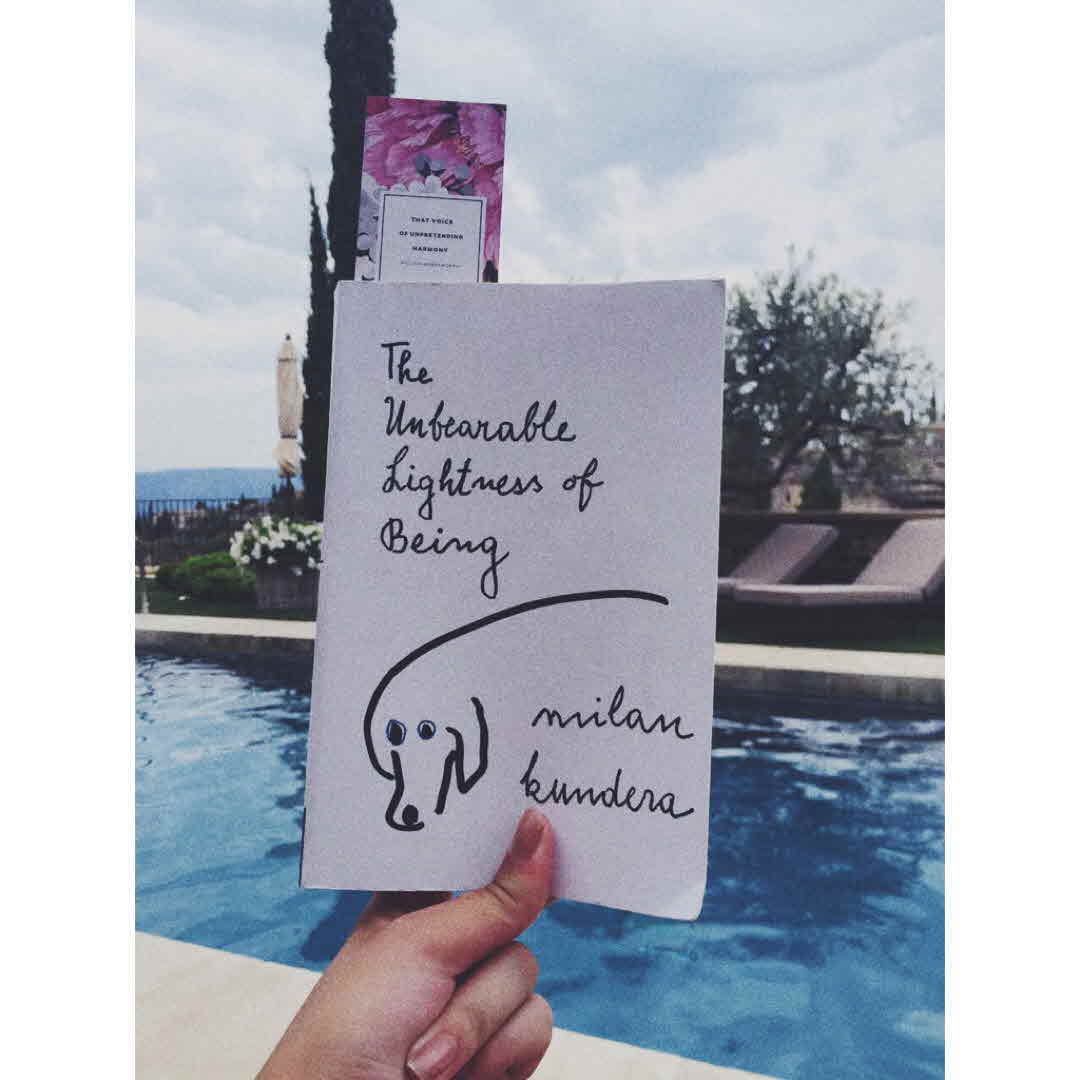 THAT VOICE
OF UNPRETENDING
HARMONY
The
Unbearable
Lightness of
Being
milan
kundera